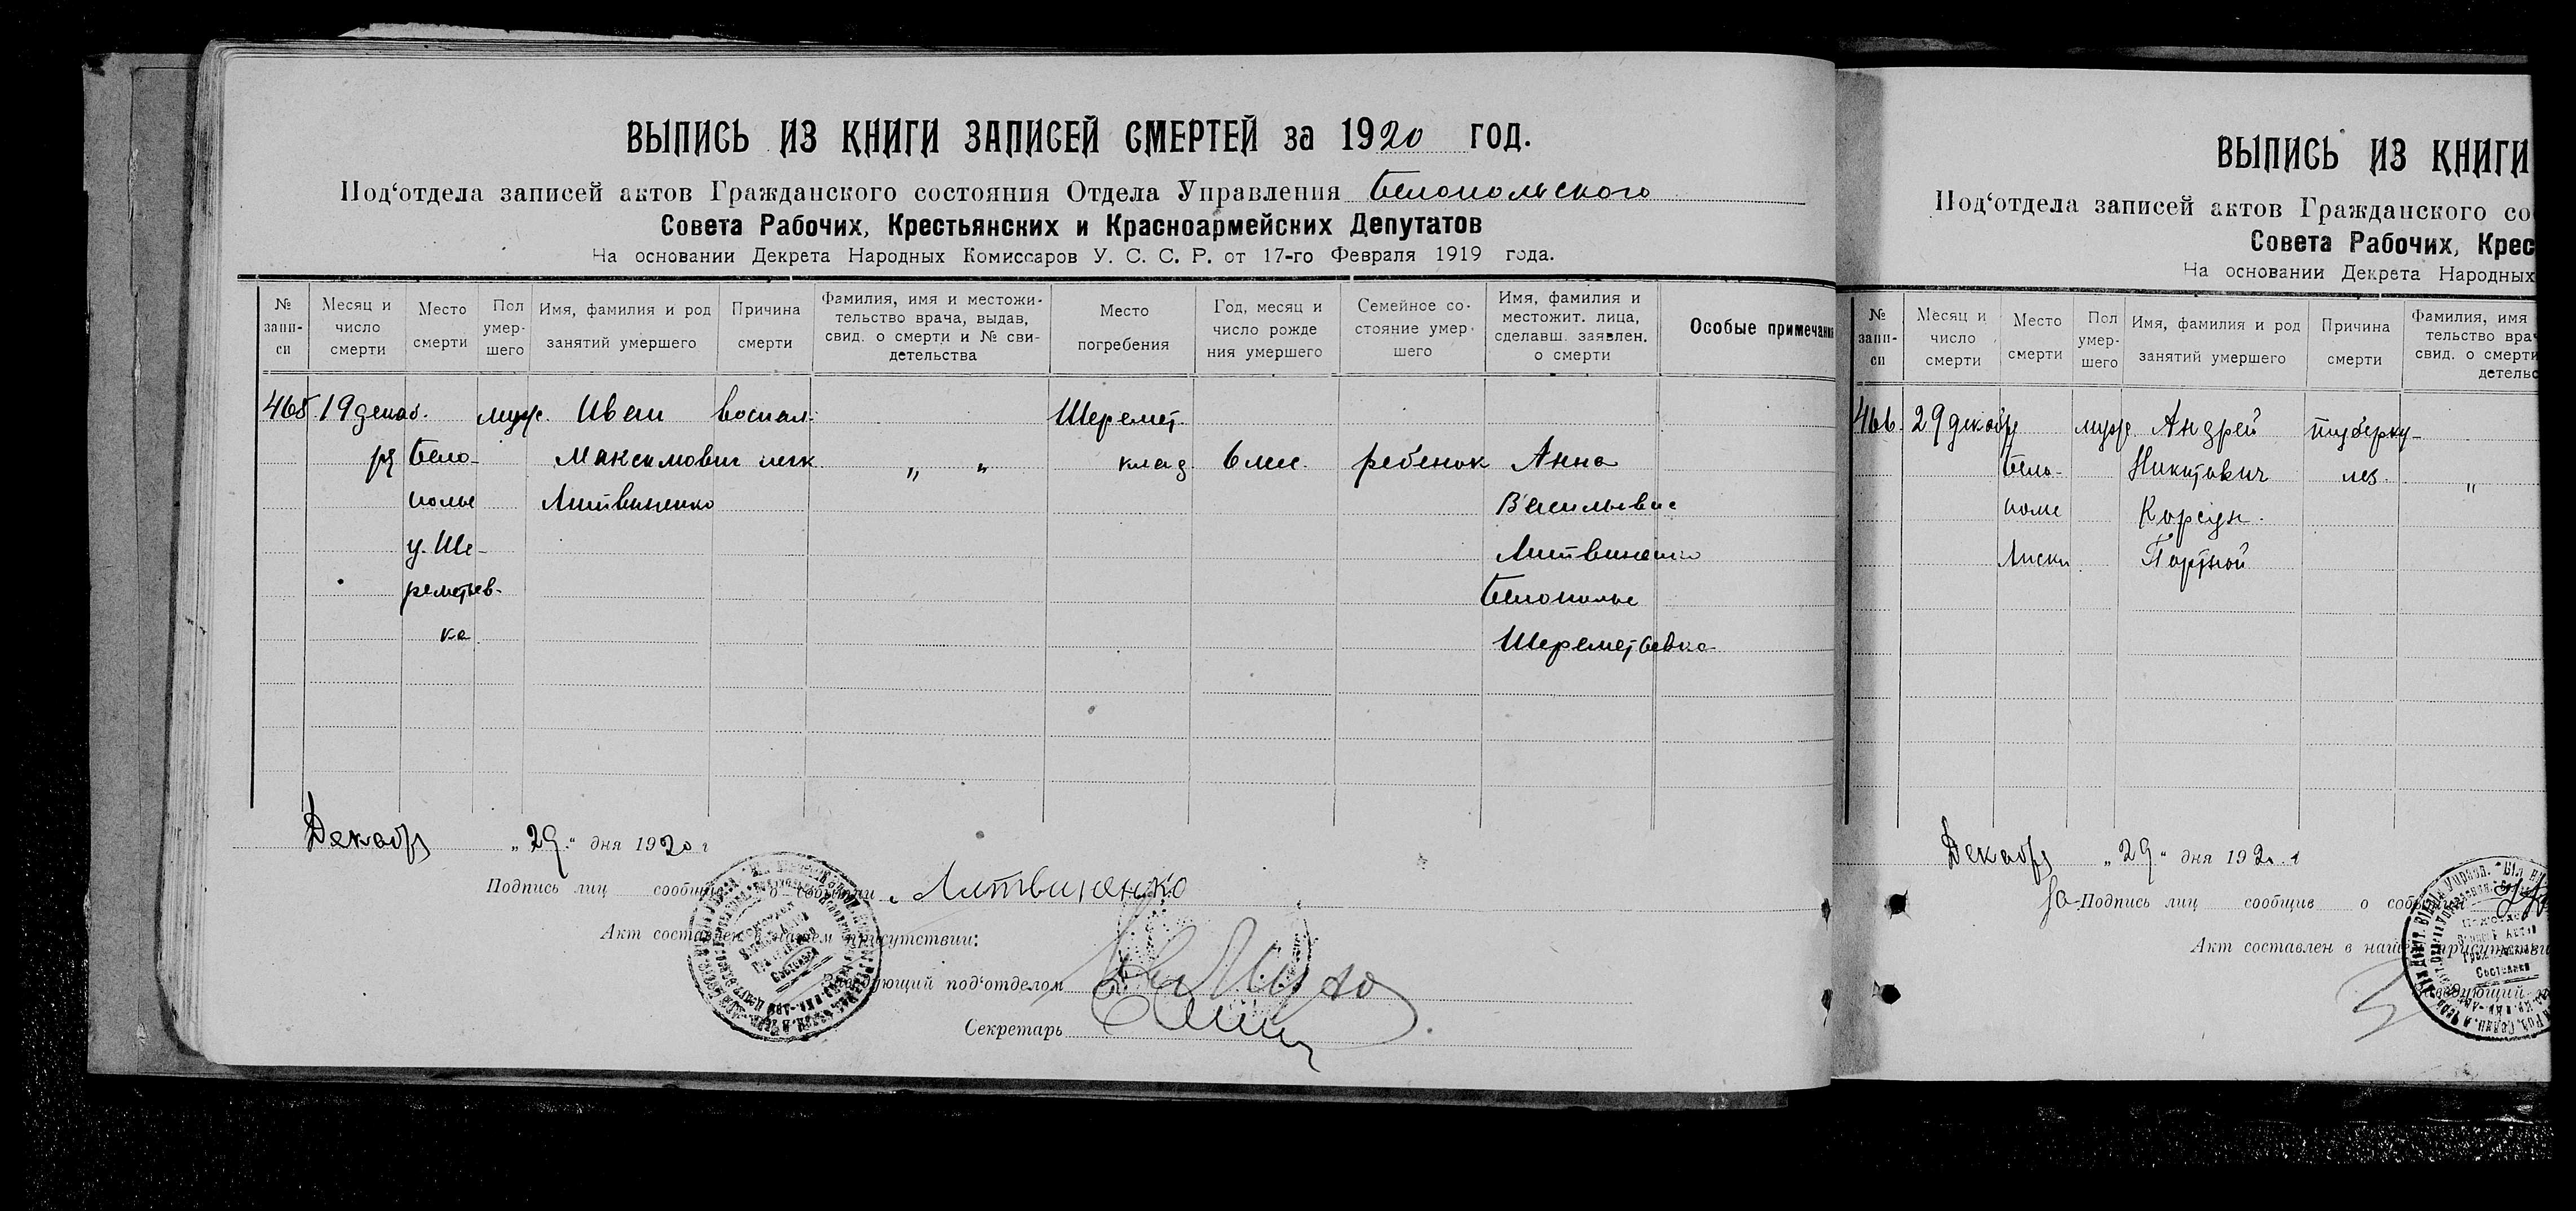 ВЫПИСЬ ИЗ КНИГИ ЗАПИСЕЙ СМЕРТЕЙ за 1920 год.
Под‘отдела записей актов Гражданского состояния Отдела Управления Белопольского
Совета Рабочих, Крестьянских и Красноармейских Депутатов
На основании Декрета Народных Комиссаров У. С. С. Р. от 17-го Февраля 1919 года.
№ запи-си
Месяц и число смерти
Место смерти
Пол умер-шего
Имя, фамилия и род занятий умершего
Причина смерти
Фамилия, имя и местожи-тельство врача, выдав, свид. о смерти и № сви-детельства
Место погребения
Год, месяц и число рожде ния умершего
Семейное со-стояние умер-шего
Имя, фамилия и местожит. лица, сделавш. заявлен. о смерти
Особые примечани
465 19 декаб. муж. Иван воспал. Шеремет.
ря Бело- Максимович легк „ „ клад. 6 мес. ребенок Анна
полье Литвиненко Васильевна
у. Ше- Литвиненко
реметьев- Белополье
ка Шереметьевка
Декабр „29“ дня 1920 г
Подпись лиц сообщив о событии Литвиненко
Акт составлен в нашем присутствии:
Заведующий под‘отделом
Секретарь
ВЫПИСЬ ИЗ КНИГИ
Под‘отдела записей актов Гражданского со
Совета Рабочих, Крес
На основании Декрета Народных
№ запи-си
Месяц и число смерти
Место смерти
Пол умер-шего
Имя, фамилия и род занятий умершего
Причина смерти
Фамилия, имя тельство врач свид. о смерти детельс
466. 29 декабр муж Андрей туберку-
Бело- Никитович лез. „
полье Корсун.
Лиски Портной
Декабр „29“ дня 192 г
Подпись лиц сообщив о событии
Акт составлен в нашем присутстви
Заведующий